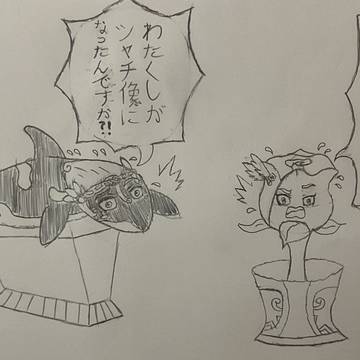 わたくしが
シャチ像に
なったんですか?!